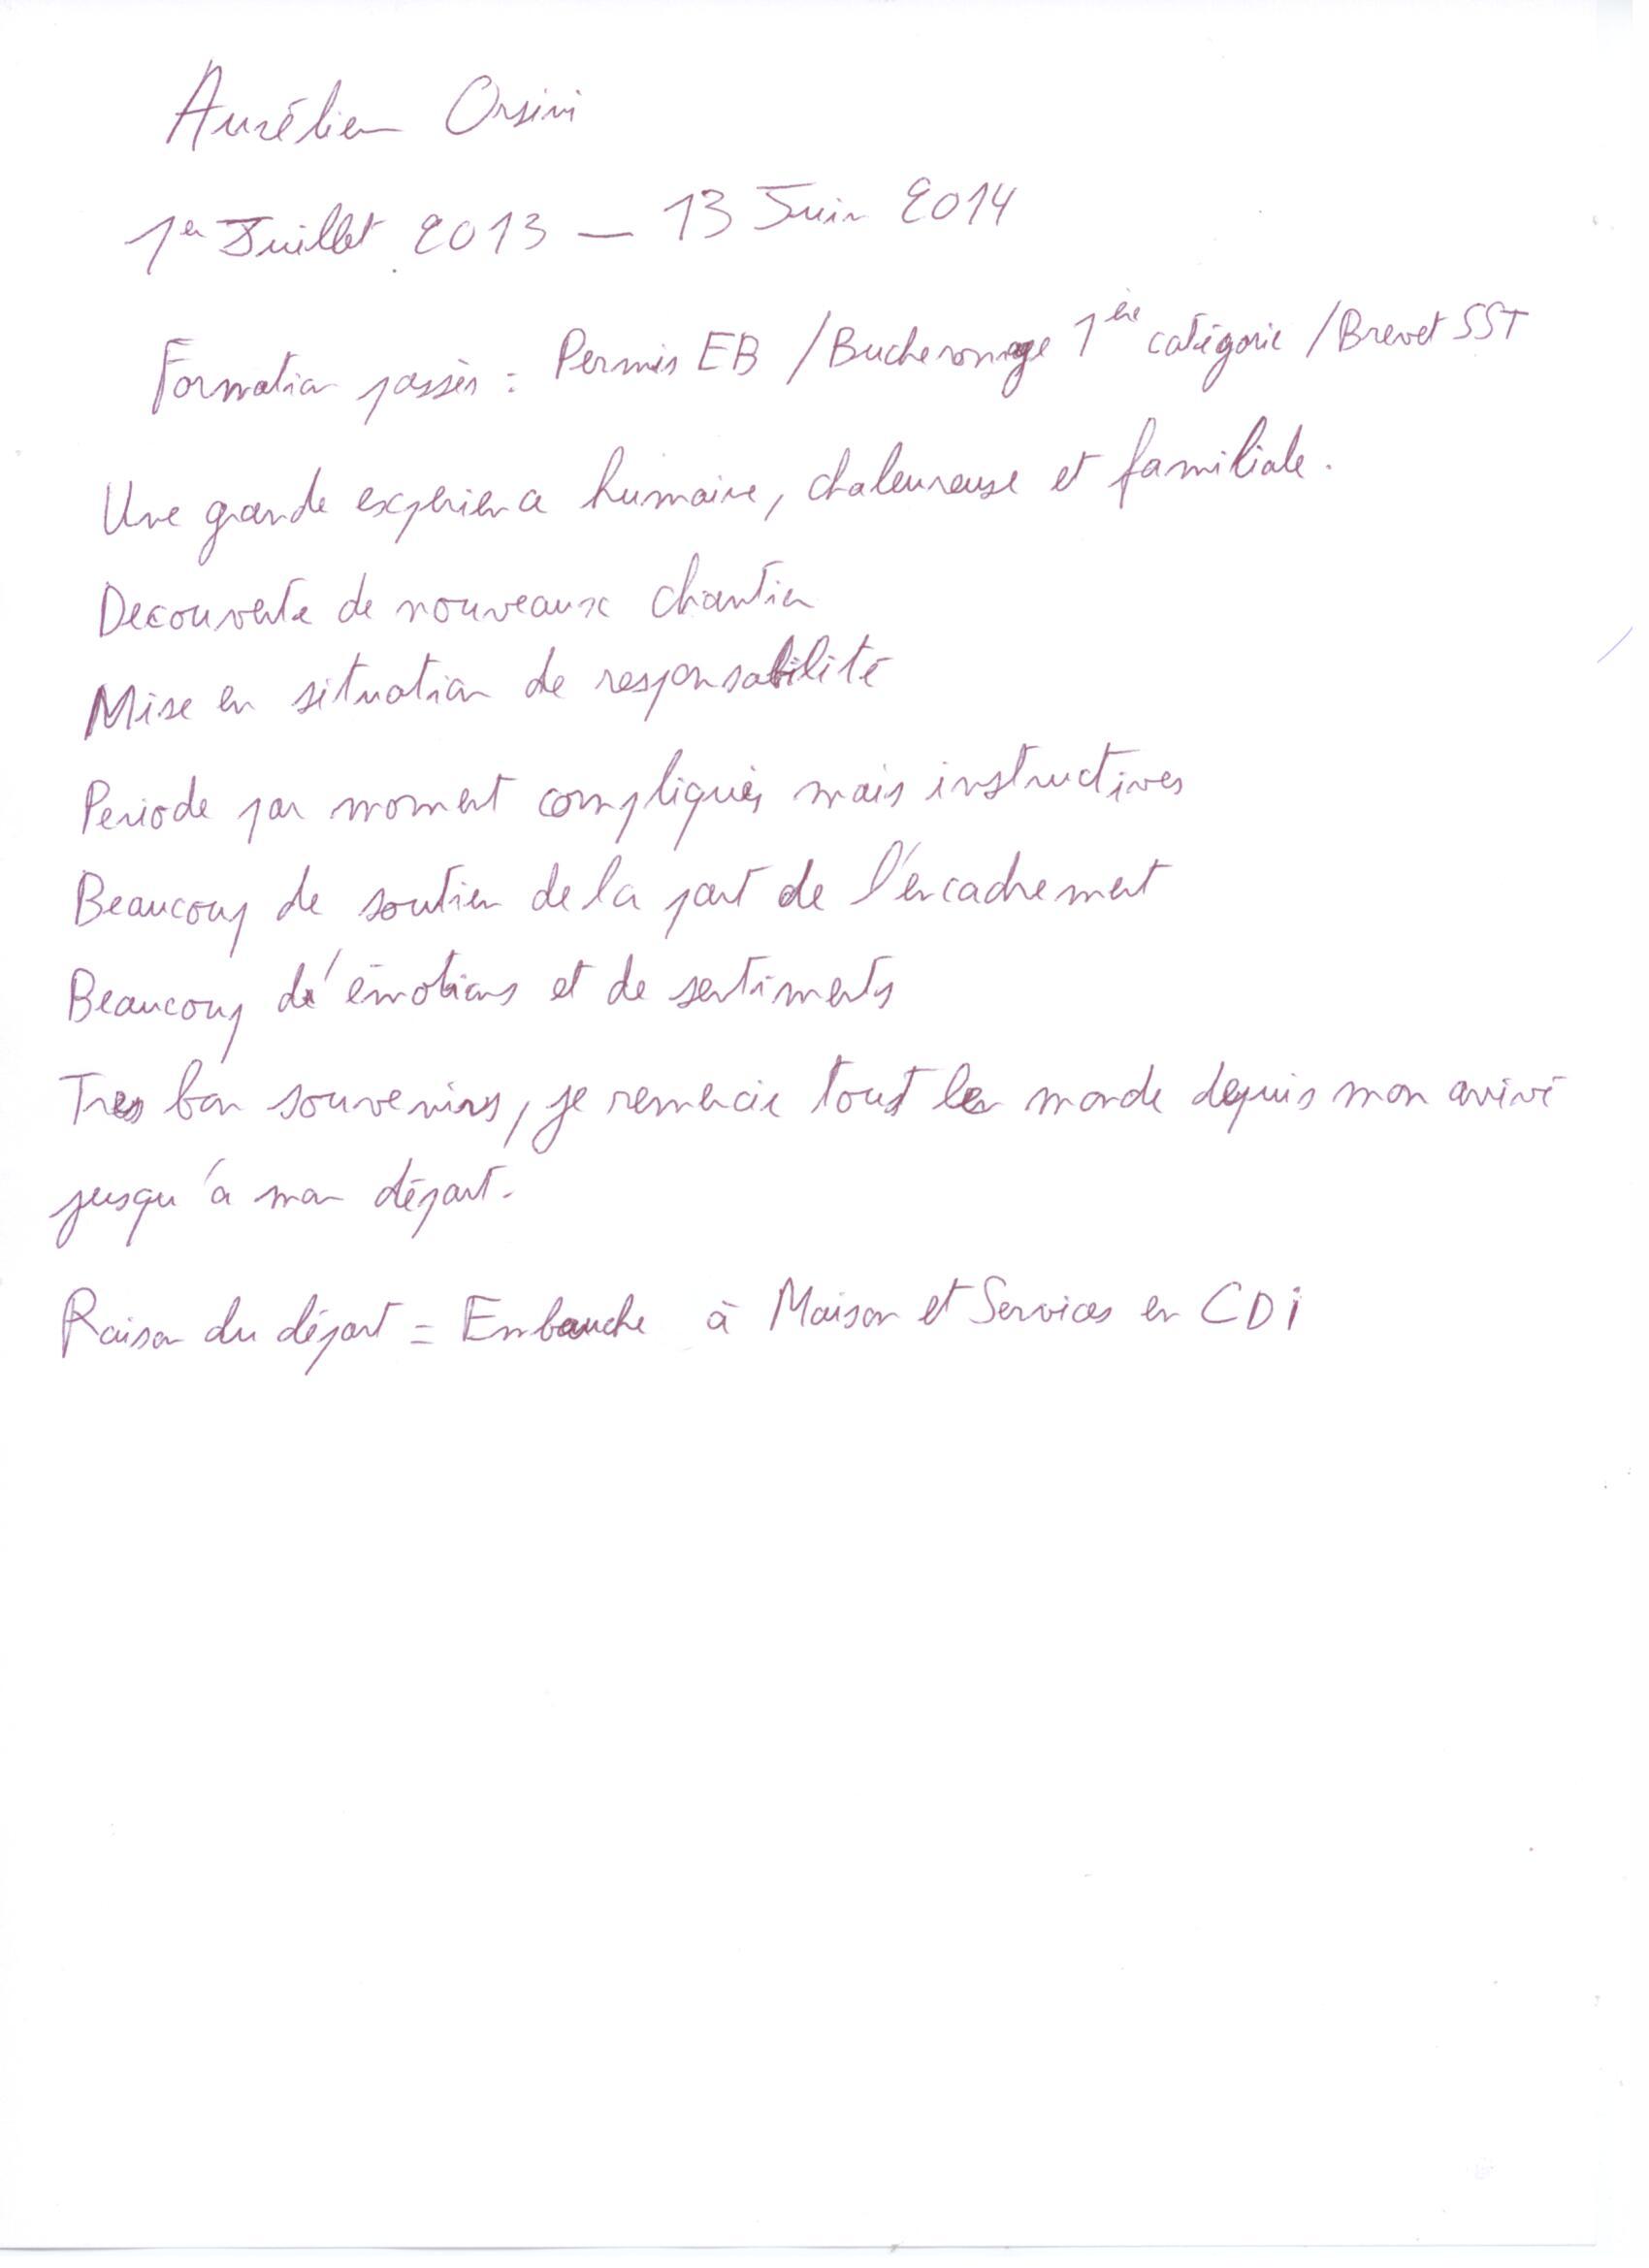 Aurélien Orsini
1er Juillet 2013 — 13 Juin 2014
Formation passès : Permis EB / Bucheronage 1ère catégorie / Brevet SST
Une grande experience humaine, chaleureuse et familiale.
Decouverte de nouveaux chantier
Mise en situation de responsabilité
Periode par moment compliquès mais instructives
Beaucoup de soutien de la part de l'encadrement
Beaucoup d'émotions et de sentiments
Tres bon souvenirs, je remercie tout le monde depuis mon arivé
jusqu'à mon départ.
Raison du départ = Embauche à Maison et Services en CDi